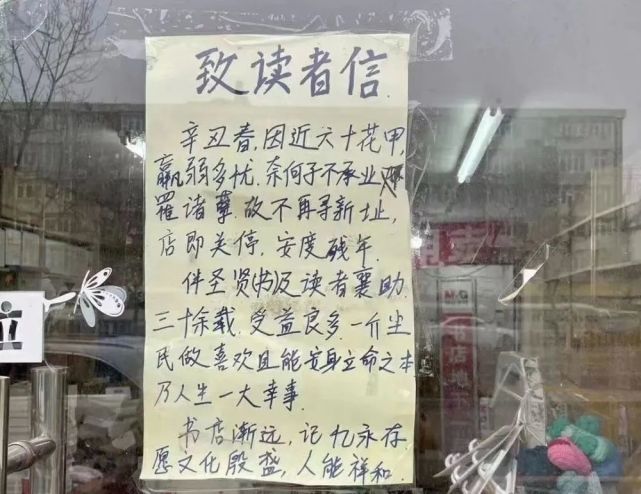 致读者信
辛丑春,因近六十花甲,
羸弱多忧.奈何子不承业,
罹诸孽,故不再寻新址,
店即关停,安度残年.
伴圣贤书及读者襄助.
三十余载,受益良多.一介尘
民做喜欢且能安身立命之本
乃人生一大幸事.
书店渐远,记忆永存
愿文化殷盛,人能祥和.
书店地